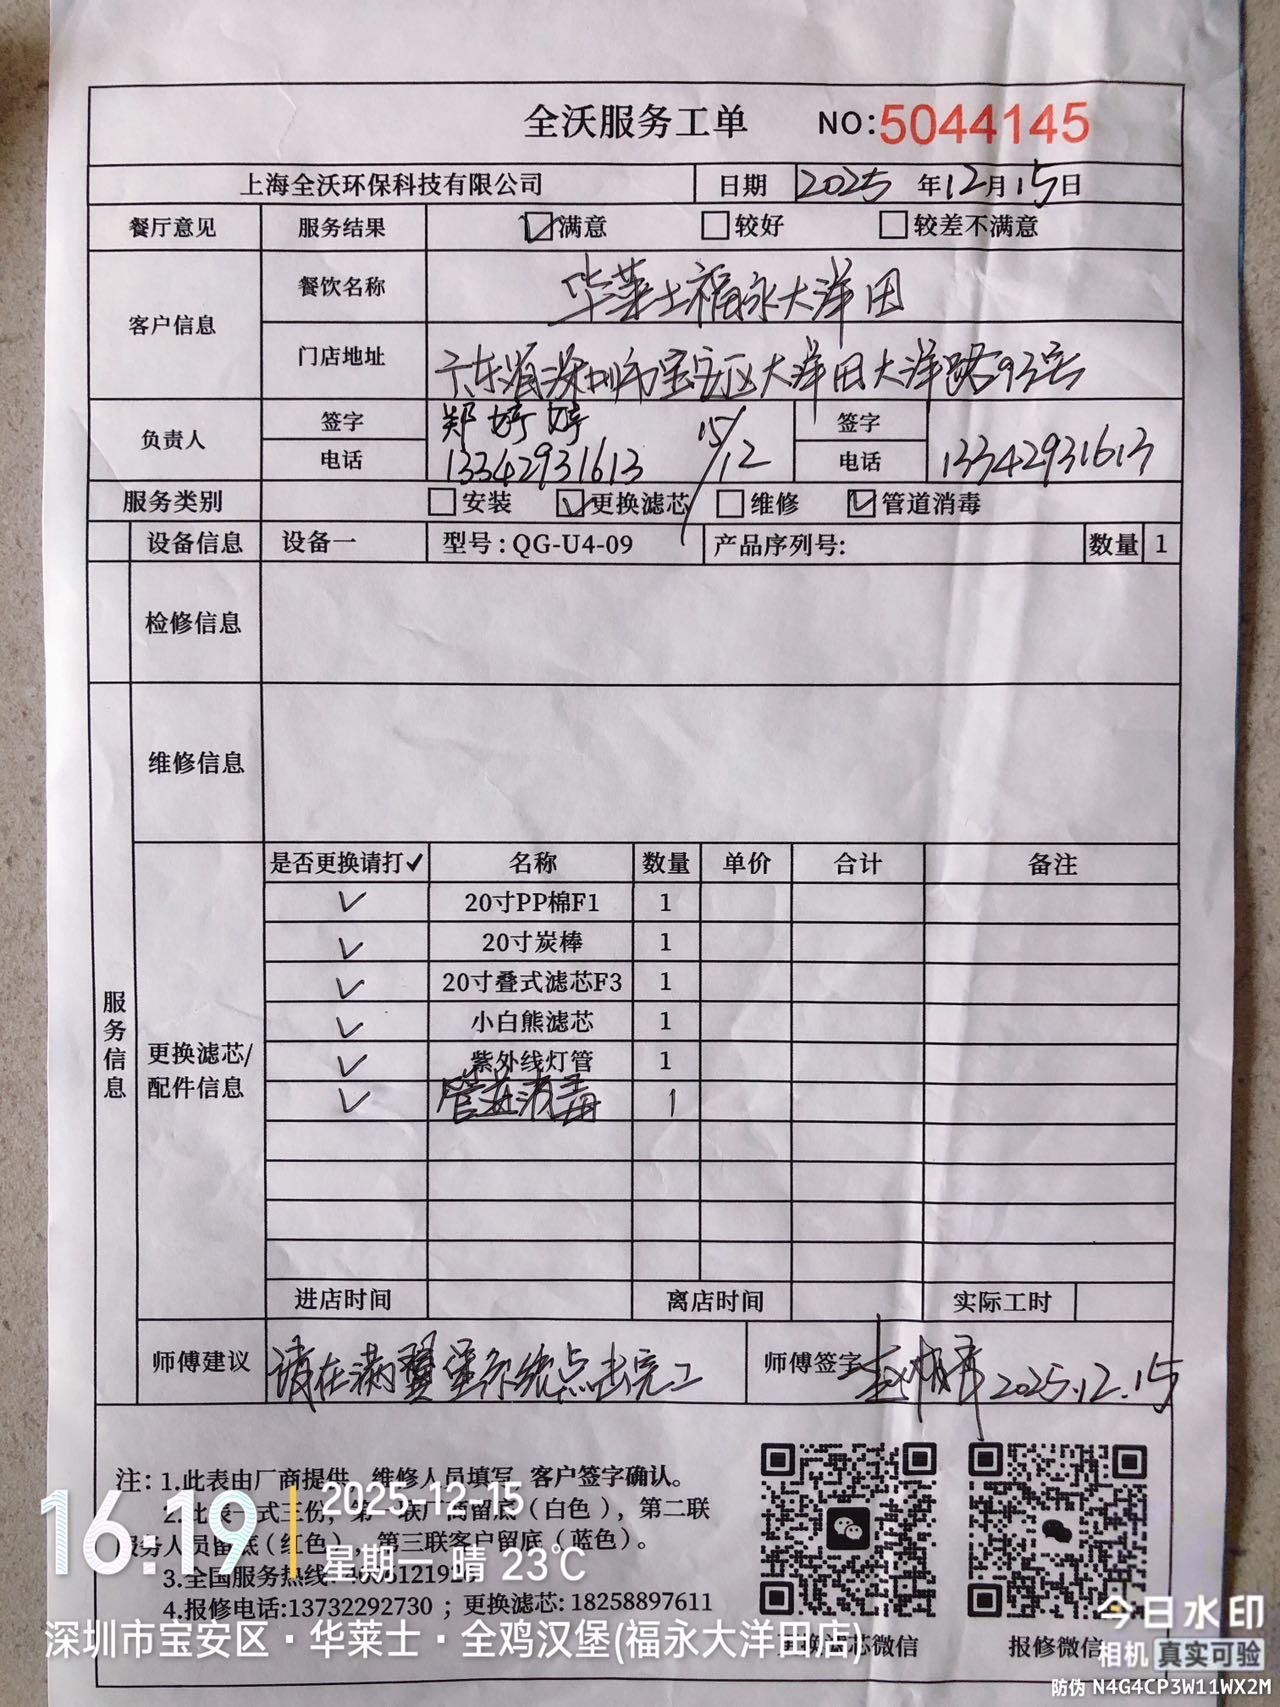 全沃服务工单 NO:5044145
上海全沃环保科技有限公司 日期 2025 年 12 月 15 日
餐厅意见 服务结果 ☑满意 □较好 □较差不满意
客户信息 餐饮名称 华莱士福永大洋田
门店地址 广东省深圳市宝安区大洋田大洋路93号
负责人 签字 郑婷婷 15/12 签字
电话 13342931613 电话 13342931613
服务类别 □安装 ☑更换滤芯 □维修 ☑管道消毒
设备信息 设备一 型号:QG-U4-09 产品序列号: 数量 1
检修信息
维修信息
服务信息
更换滤芯/配件信息
是否更换请打✓ 名称 数量 单价 合计 备注
✓ 20寸PP棉F1 1
✓ 20寸炭棒 1
✓ 20寸叠式滤芯F3 1
✓ 小白熊滤芯 1
✓ 紫外线灯管 1
✓ 管道消毒 1
进店时间 离店时间 实际工时
师傅建议 请在满翼堡系统点击完工 师傅签字 2025.12.15
注: 1.此表由厂商提供，维修人员填写，客户签字确认。
2.此表一式三份，第一联厂商留底（白色），第二联
服务人员留底（红色），第三联客户留底（蓝色）。
3.全国服务热线
4.报修电话:13732292730；更换滤芯:18258897611
芯微信 报修微信
16:19 2025.12.15
星期一 晴 23℃
深圳市宝安区·华莱士·全鸡汉堡(福永大洋田店)
今日水印
相机 真实可验
防伪 N4G4CP3W11WX2M